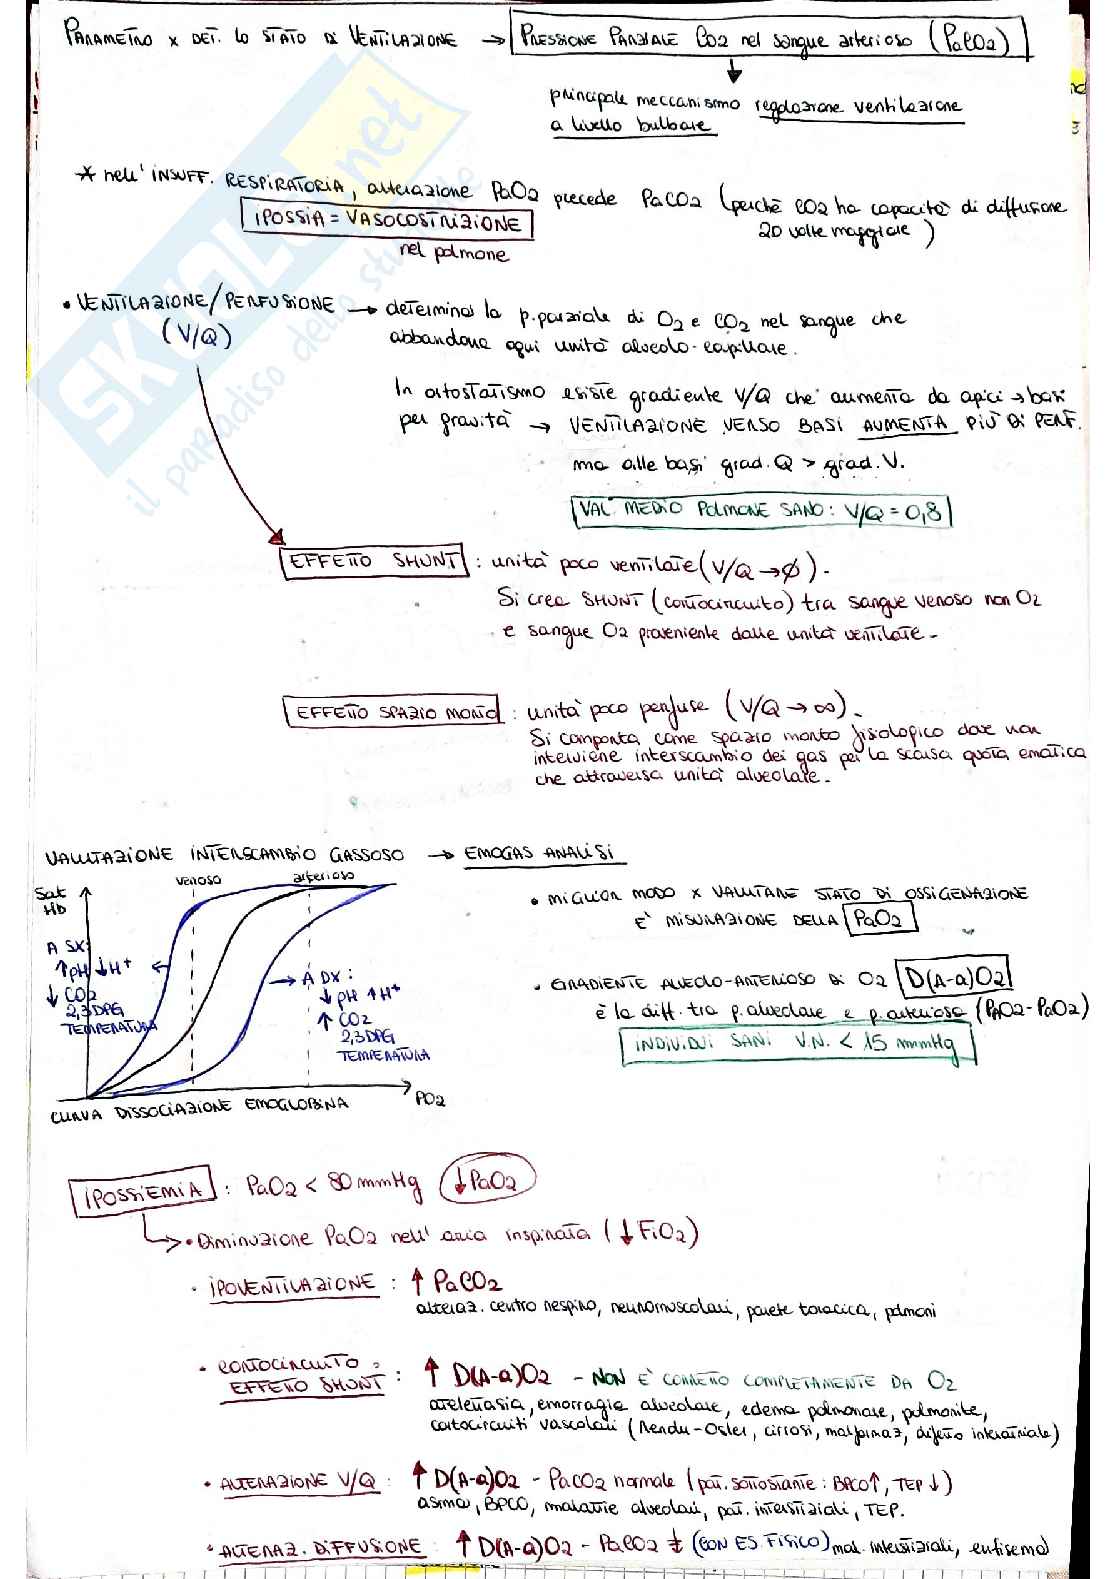 PARAMETRO x DET. LO STATO DI VENTILAZIONE → PRESSIONE PARZIALE CO2 nel sangue arterioso (PaCO2)
principale meccanismo regolazione ventilazione
a livello bulbare
* nell' INSUFF. RESPIRATORIA, alterazione PaO2 precede PaCO2 (perchè CO2 ha capacità di diffusione
20 volte maggiore)
IPOSSIA = VASOCOSTRIZIONE
nel polmone
• VENTILAZIONE/PERFUSIONE → determina la p.parziale di O2 e CO2 nel sangue che
(V/Q)
abbandona ogni unità alveolo-capillare.
In ortostatismo esiste gradiente V/Q che aumenta da apici → basi
per gravità → VENTILAZIONE VERSO BASI AUMENTA PIÙ DI PERF.
ma alle basi grad. Q > grad. V.
VAL. MEDIO POLMONE SANO: V/Q = 0,8
EFFETTO SHUNT : unità poco ventilate (V/Q → ø).
Si crea SHUNT (cortocircuito) tra sangue venoso non O2
e sangue O2 proveniente dalle unità ventilate.
EFFETTO SPAZIO MORTO : unità poco perfuse (V/Q → ∞).
Si comporta come spazio morto fisiologico dove non
interviene interscambio dei gas per la scarsa quota ematica
che attraversa unità alveolare.
VALUTAZIONE INTERSCAMBIO GASSOSO → EMOGAS ANALISI
venoso
arterioso
Sat
Hb
A SX:
↑pH ↓H+
↓ CO2
2,3 DPG
TEMPERATURA
A DX:
↓ pH ↑ H+
↑ CO2
2,3 DPG
TEMPERATURA
PO2
CURVA DISSOCIAZIONE EMOGLOBINA
• MIGLIOR MODO x VALUTARE STATO DI OSSIGENAZIONE
E' MISURAZIONE DELLA PaO2
• GRADIENTE ALVEOLO-ARTERIOSO DI O2 D(A-a)O2
è la diff. tra p. alveolare e p. arteriosa (PAO2-PaO2)
INDIVIDUI SANI V.N. < 15 mmHg
IPOSSIEMIA : PaO2 < 80 mmHg ↓PaO2
• DIMINUZIONE PaO2 nell' aria inspirata (↓ FiO2)
• IPOVENTILAZIONE : ↑ PaCO2
alteraz. centro respiro, neuromuscolari, parete toracica, polmoni
• CORTOCIRCUITO =
EFFETTO SHUNT : ↑ D(A-a)O2 - NON È CORRETTO COMPLETAMENTE DA O2
atelettasia, emorragia alveolare, edema polmonare, polmonite,
cortocircuiti vascolari (Rendu-Osler, cirrosi, malformaz, difetto interatriale)
• ALTERAZIONE V/Q : ↑ D(A-a)O2 - PaCO2 normale (pat. sottostante: BPCO↑, TEP↓)
asma, BPCO, malattie alveolari, pat. interstiziali, TEP.
• ALTERAZ. DIFFUSIONE : ↑ D(A-a)O2 - PaCO2 ± (CON ES. FISICO) mal. interstiziali, enfisema
SKUOLA.net
il paradiso dello studente